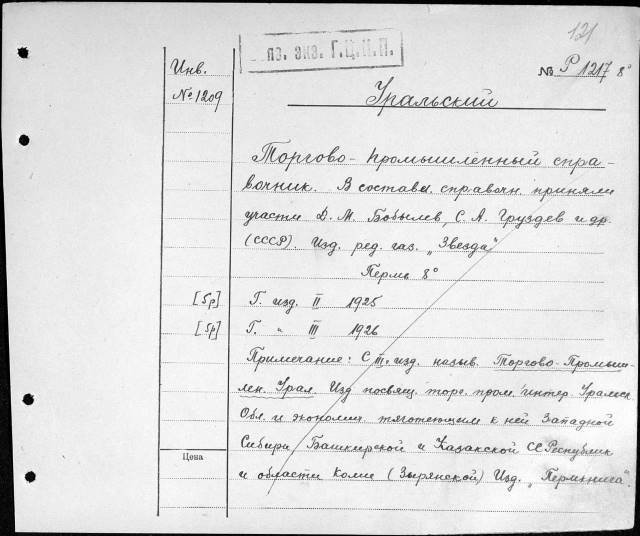 121
яз. экз. Г.Ц.К.П.
Инв.
№ 1209
№ Р 1217 8°
Уральский
Торгово-промышленный спра-
вочник. В составл. справочн. приняли
участи Д. М. Бобылев, С. А. Груздев и др.
(СССР). Изд. ред. газ. „Звезда"
Пермь 8°
[5р] Г. изд. II 1925
[5р] Г. „ III 1926
Примечание: С III. изд. назыв. Торгово-Промыш-
лен. Урал. Изд посвящ. торг. пром. интер. Уральск.
Обл. и эконом. тяготеющим к ней Западной
Сибири Башкирской и Казакской СС Республик
Цена
и области Коми (Зырянской) Изд. „Пермкнига"